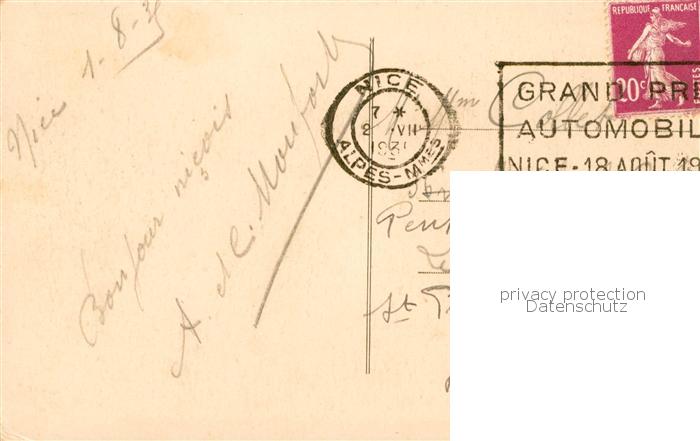 Nice 1-8-3
Bonjour niçois
A. et C. Monfort
NICE
7 *
2 -VII
193
ALPES-MMES
GRAND PRI
AUTOMOBIL
NICE-18 AOÛT 19
REPUBLIQUE FRANÇAISE
20c
POSTES
Mme Colle
Pen
St P
privacy protection
Datenschutz